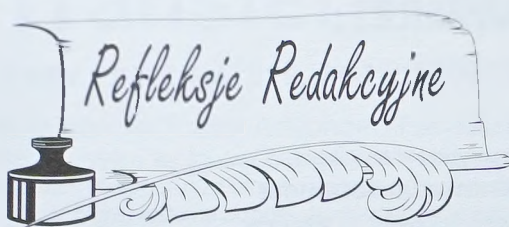 Refleksje Redakcyjne